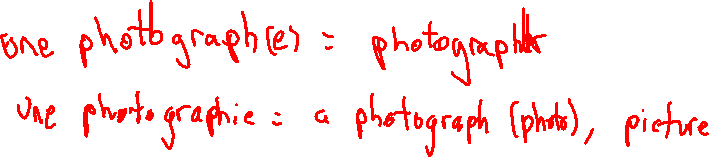 une photograph(e) = photograph
une photographie = a photograph (photo), picture